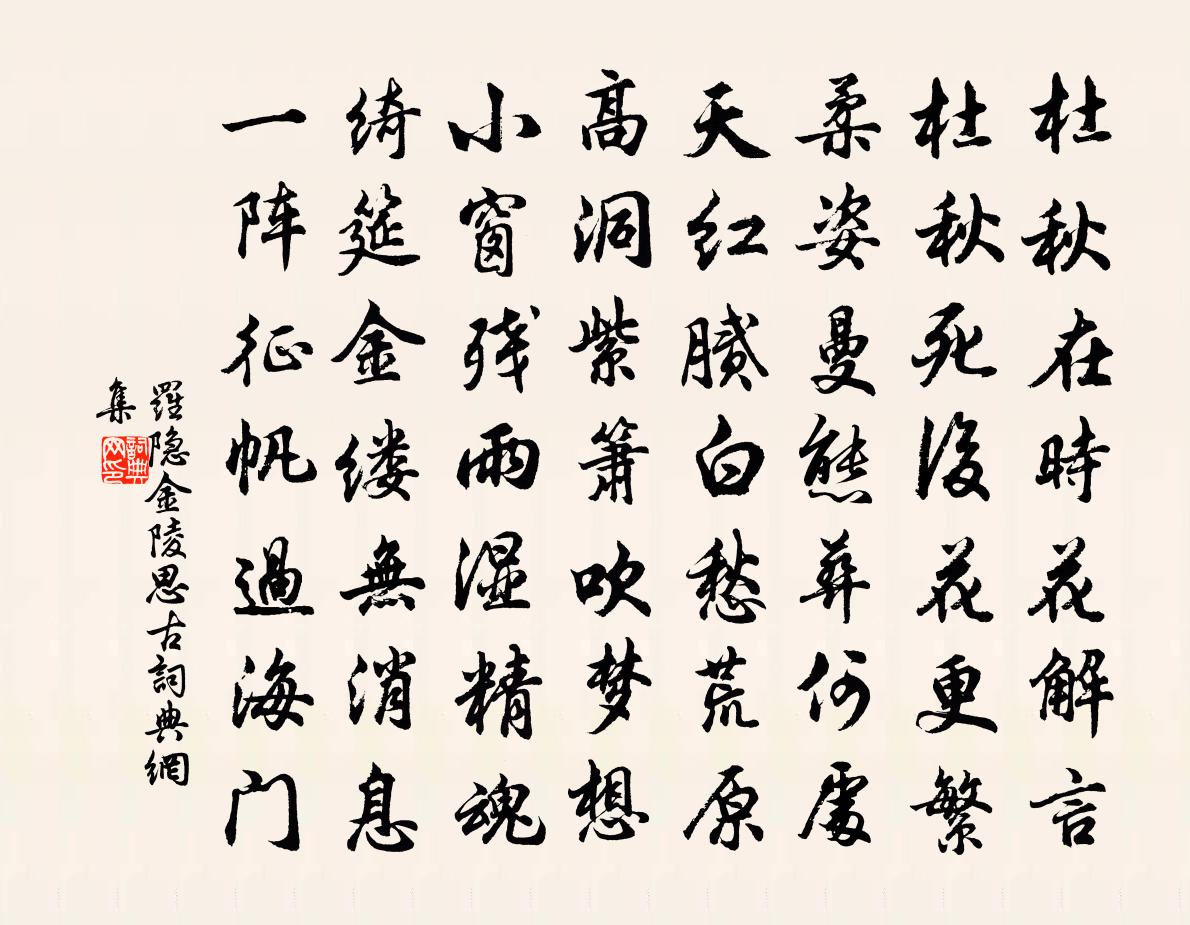 杜秋在時花解言
杜秋死後花更繁
柔姿曼態葬何處
天红腻白愁荒原
高洞紫箫吹梦想
小窗残雨湿精魂
绮筵金缕無消息
一阵征帆過海门
羅隐金陵思古詞典網
集
詞典
网印